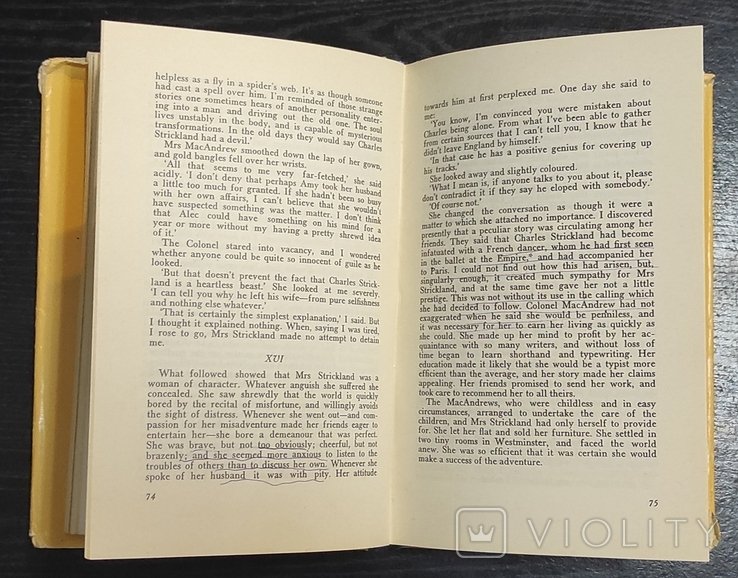 helpless as a fly in a spider's web. It's as though someone
had cast a spell over him. I'm reminded of those strange
stories one sometimes hears of another personality enter-
ing into a man and driving out the old one. The soul
lives unstably in the body, and is capable of mysterious
transformations. In the old days they would say Charles
Strickland had a devil.'
Mrs MacAndrew smoothed down the lap of her gown,
and gold bangles fell over her wrists.
'All that seems to me very far-fetched,' she said
acidly. 'I don't deny that perhaps Amy took her husband
a little too much for granted. If she hadn't been so busy
with her own affairs, I can't believe that she wouldn't
have suspected something was the matter. I don't think
that Alec could have something on his mind for a
year or more without my having a pretty shrewd idea
of it.'
The Colonel stared into vacancy, and I wondered
whether anyone could be quite so innocent of guile as he
looked.
'But that doesn't prevent the fact that Charles Strick-
land is a heartless beast.' She looked at me severely.
'I can tell you why he left his wife—from pure selfishness
and nothing else whatever.'
'That is certainly the simplest explanation,' I said. But
I thought it explained nothing. When, saying I was tired,
I rose to go, Mrs Strickland made no attempt to detain
me.
XVI
What followed showed that Mrs Strickland was a
woman of character. Whatever anguish she suffered she
concealed. She saw shrewdly that the world is quickly
bored by the recital of misfortune, and willingly avoids
the sight of distress. Whenever she went out—and com-
passion for her misadventure made her friends eager to
entertain her—she bore a demeanour that was perfect.
She was brave, but not too obviously; cheerful, but not
brazenly; and she seemed more anxious to listen to the
troubles of others than to discuss her own. Whenever she
spoke of her husband it was with pity. Her attitude
74
towards him at first perplexed me. One day she said to
me:
'You know, I'm convinced you were mistaken about
Charles being alone. From what I've been able to gather
from certain sources that I can't tell you, I know that he
didn't leave England by himself.'
'In that case he has a positive genius for covering up
his tracks.'
She looked away and slightly coloured.
'What I mean is, if anyone talks to you about it, please
don't contradict it if they say he eloped with somebody.'
'Of course not.'
She changed the conversation as though it were a
matter to which she attached no importance. I discovered
presently that a peculiar story was circulating among her
friends. They said that Charles Strickland had become
infatuated with a French dancer, whom he had first seen
in the ballet at the Empire,* and had accompanied her
to Paris. I could not find out how this had arisen, but,
singularly enough, it created much sympathy for Mrs
Strickland, and at the same time gave her not a little
prestige. This was not without its use in the calling which
she had decided to follow. Colonel MacAndrew had not
exaggerated when he said she would be penniless, and
it was necessary for her to earn her living as quickly as
she could. She made up her mind to profit by her ac-
quaintance with so many writers, and without loss of
time began to learn shorthand and typewriting. Her
education made it likely that she would be a typist more
efficient than the average, and her story made her claims
appealing. Her friends promised to send her work, and
took care to recommend her to all theirs.
The MacAndrews, who were childless and in easy
circumstances, arranged to undertake the care of the
children, and Mrs Strickland had only herself to provide
for. She let her flat and sold her furniture. She settled in
two tiny rooms in Westminster, and faced the world
anew. She was so efficient that it was certain she would
make a success of the adventure.
75
VIOLITY